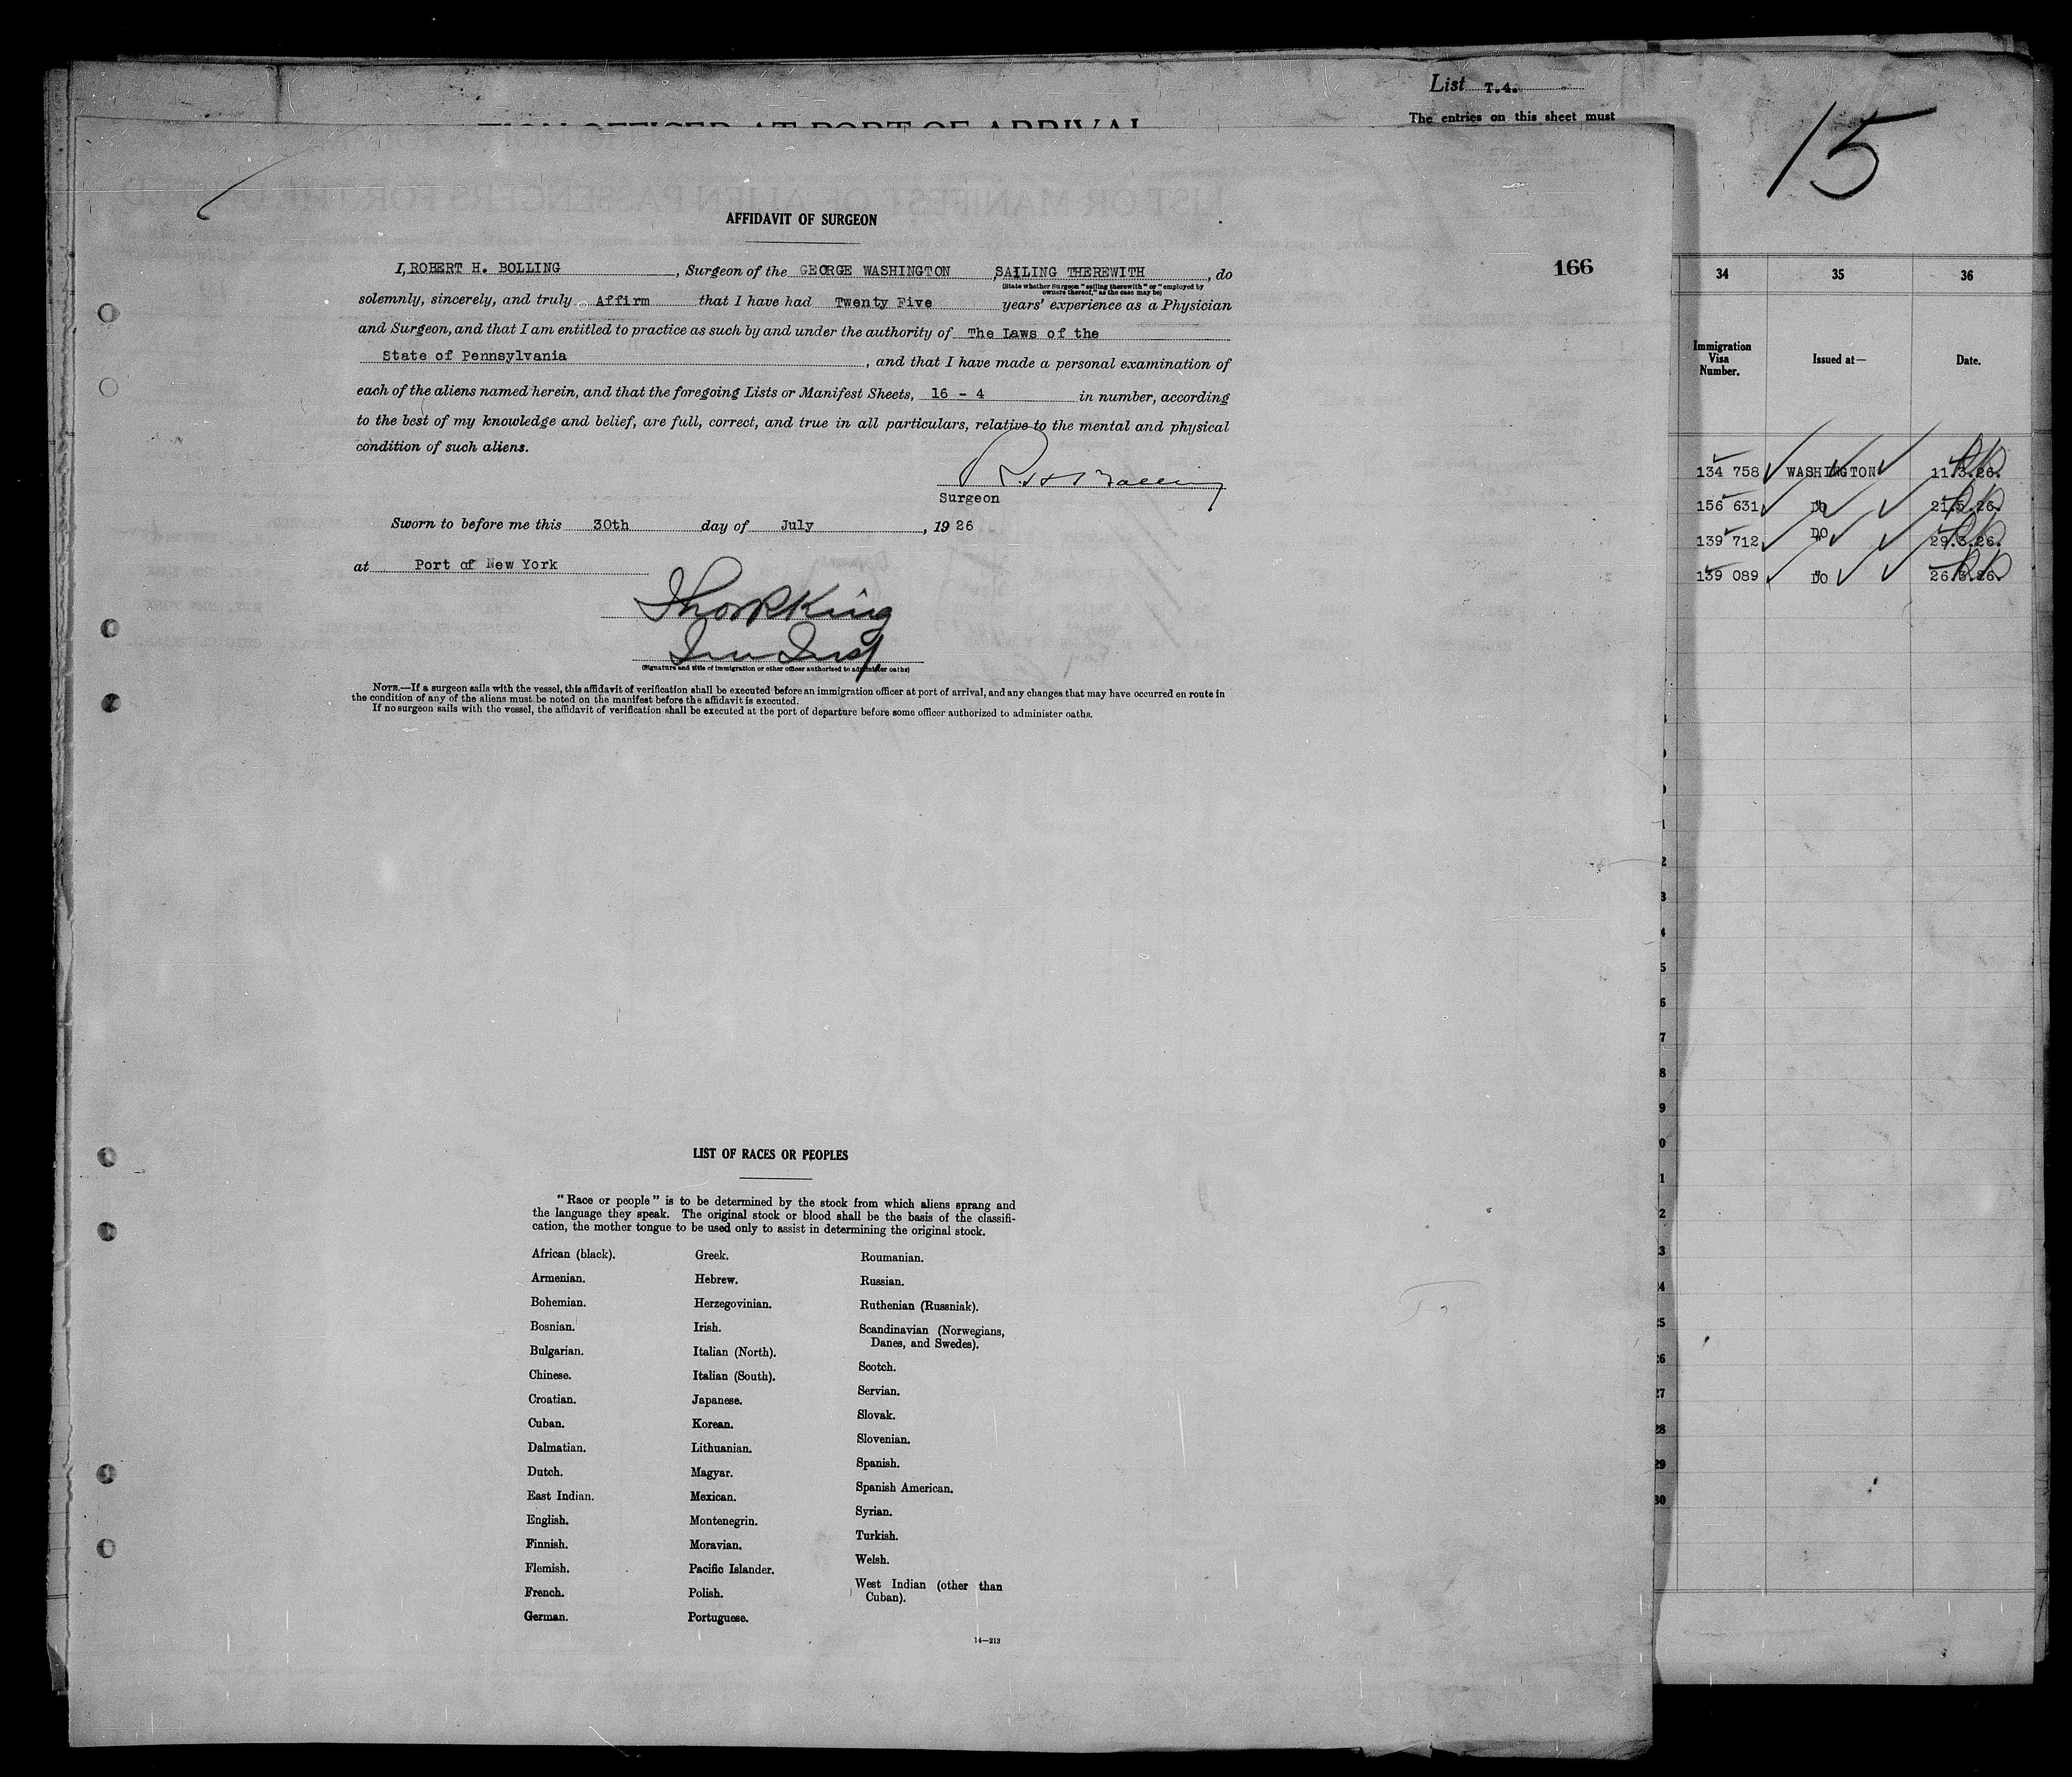 List T.4.
The entries on this sheet must
15
TION OFFICER AT PORT OF ARRIVAL
AFFIDAVIT OF SURGEON
166
I, ROBERT H. BOLLING, Surgeon of the GEORGE WASHINGTON, SAILING THEREWITH, do
(State whether Surgeon "sailing therewith" or "employed by
owners thereof," as the case may be)
solemnly, sincerely, and truly Affirm that I have had Twenty Five years' experience as a Physician
and Surgeon, and that I am entitled to practice as such by and under the authority of The Laws of the
State of Pennsylvania, and that I have made a personal examination of
each of the aliens named herein, and that the foregoing Lists or Manifest Sheets, 16 - 4 in number, according
to the best of my knowledge and belief, are full, correct, and true in all particulars, relative to the mental and physical
condition of such aliens.
R. H. Bolling
Surgeon
Sworn to before me this 30th day of July, 19 26
at Port of New York
(Signature and title of immigration or other officer authorized to administer oaths)
NOTE.—If a surgeon sails with the vessel, this affidavit of verification shall be executed before an immigration officer at port of arrival, and any changes that may have occurred en route in
the condition of any of the aliens must be noted on the manifest before the affidavit is executed.
If no surgeon sails with the vessel, the affidavit of verification shall be executed at the port of departure before some officer authorized to administer oaths.
LIST OF RACES OR PEOPLES
"Race or people" is to be determined by the stock from which aliens sprang and
the language they speak. The original stock or blood shall be the basis of the classifi-
cation, the mother tongue to be used only to assist in determining the original stock.
African (black).
Armenian.
Bohemian.
Bosnian.
Bulgarian.
Chinese.
Croatian.
Cuban.
Dalmatian.
Dutch.
East Indian.
English.
Finnish.
Flemish.
French.
German.
Greek.
Hebrew.
Herzegovinian.
Irish.
Italian (North).
Italian (South).
Japanese.
Korean.
Lithuanian.
Magyar.
Mexican.
Montenegrin.
Moravian.
Pacific Islander.
Polish.
Portuguese.
Roumanian.
Russian.
Ruthenian (Russniak).
Scandinavian (Norwegians,
Danes, and Swedes).
Scotch.
Servian.
Slovak.
Slovenian.
Spanish.
Spanish American.
Syrian.
Turkish.
Welsh.
West Indian (other than
Cuban).
14—213
34 35 36
Immigration
Visa
Number.
Issued at—
Date.
134 758 WASHINGTON 11.3.26.
156 631 DO 21.5.26.
139 712 DO 29.3.26.
139 089 DO 26.3.26.
0
1
2
3
4
5
6
7
8
9
0
1
2
3
24
25
26
27
28
29
30